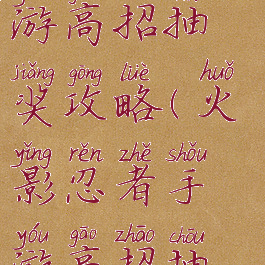 游高招抽
jiǎng gōng lüè huǒ
奖攻略(火
yǐng rěn zhě shǒu
影忍者手
yóu gāo zhāo chōu
游高招抽